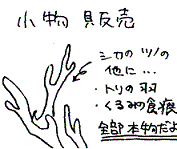 小物 販売
シカのツノの
他に…
・トリの羽
・くるみの食痕
全部本物だよ